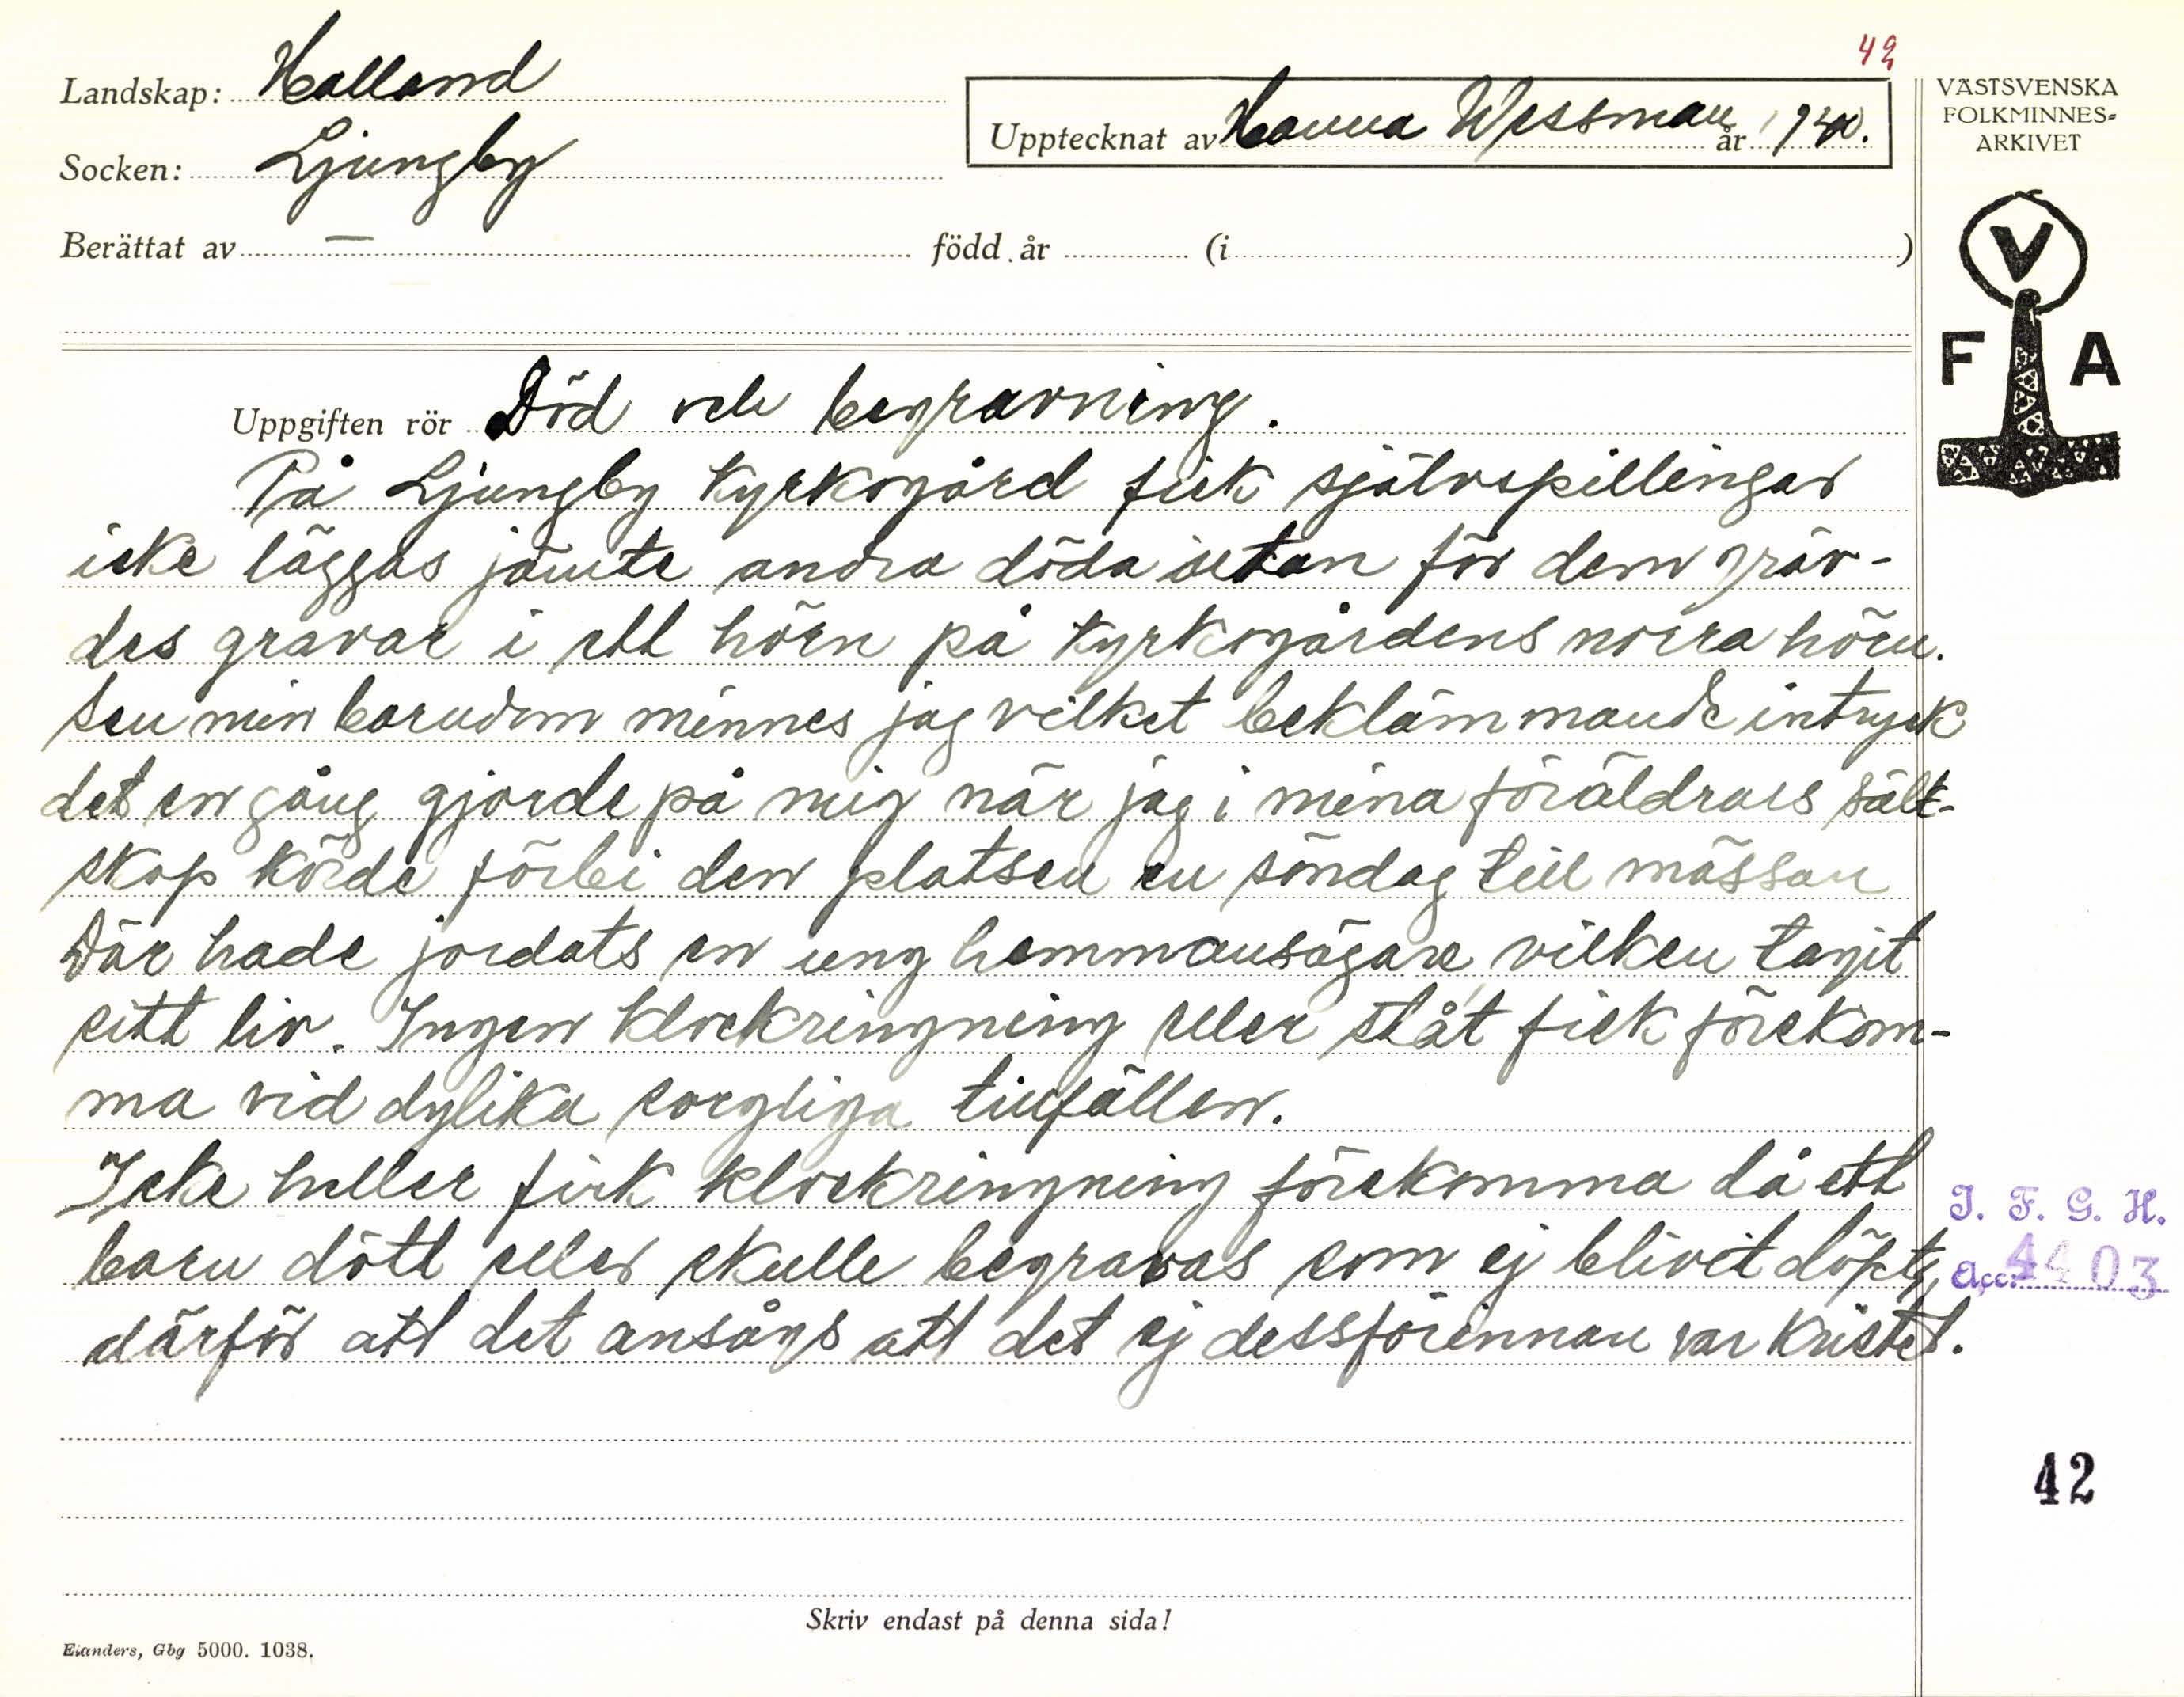 42
Landskap: Halland
Upptecknat av Hanna Wessman år 1940.
VÄSTSVENSKA
FOLKMINNES-
ARKIVET
Socken: Ljungby
Berättat av — född år (i )
V
F A
Uppgiften rör Död och begravning.
På Ljungby kyrkogård fick självspillingar
icke läggas jämte andra döda utan för dem gräv-
des gravar i ett hörn på kyrkogårdens norra hörn.
Sen min barndom minnes jag vilket beklämmande intryck
det en gång gjorde på mig när jag i mina föräldrars säll-
skap körde förbi den platsen en söndag till mässan
Där hade jordats en ung hemmansägare, vilken tagit
sitt liv. Ingen klockringning eller ståt fick förekom-
ma vid dylika sorgliga tillfällen.
Icke heller fick klockringning förekomma då ett
barn dött eller skulle begravas som ej blivit döpt,
därför att det ansågs att det ej dessförinnan var kristet.
I. F. G. H.
Acc. 4403
42
Skriv endast på denna sida!
Elanders, Gbg 5000. 1038.